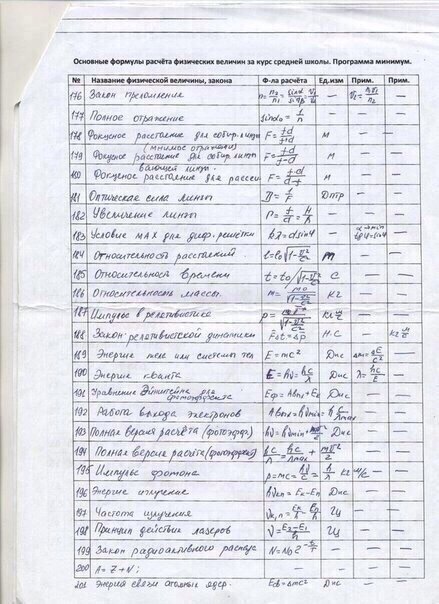 Основные формулы расчёта физических величин за курс средней школы. Программа минимум.
№ Название физической величины, закона Ф-ла расчёта Ед.изм Прим. Прим.
176 Закон преломления n=n₂/n₁=sinα/sinβ=v₁/v₂ — —
177 Полное отражение sinα₀=1/n — — —
178 Фокусное расстояние для собир. линзы м — —
179 (мнимое отражен) Фокусное расстояние для собир. линзы м — —
180 Фокусное расстояние для рассеи м — —
181 Оптическая сила линзы D=1/F Дптр — —
182 Увеличение линзы Г=f/d=H/h — — —
183 Условие мах для диф. решётки kλ=dsinφ —
184 Относительность расстояний l=l₀√1-v²/c² м — —
185 Относительность времени С — —
186 Относительность массы m=m₀/√1-v²/c² Кг — —
187 Импульс в релятивистике —
188 Закон релятивистской динамики FΔt=Δp Н·С —
189 Энергия тела или системы тел E=mc² Дж —
190 Энергия кванта E=hν=hc/λ Дж λ=hc/E —
191 Уравнение Эйнштейна для фотоэффекта Eф=Aвых+Eк Дж — —
192 Работа выхода электронов Дж — —
193 Полная версия расчёта (фотоэфф) Дж — —
194 Полная версия расчёта (фотоэффект) hc/λ=hc/λmax+mv²/2 — —
195 Импульс фотона p=mc=hν/c=h/λ —
196 Энергия излучения hνkn=Eк-En Дж — —
197 Частота излучения Гц — —
198 Принцип действия лазеров ν=E₂-E₁/h Гц — —
199 Закон радиоактивного распада — — —
200 A=Z+N; — — — —
201 Энергия связи атомных ядер. Eсв=Δmc² Дж — —